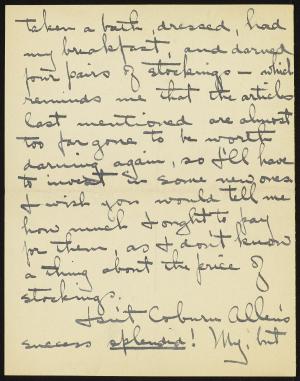 taken a bath, dressed, had
my breakfast, and darned
four pairs of stockings – which
reminds me that the articles
last mentioned are almost
too far gone to be worth
darning again, so I'll have
to invest in some new ones.
I wish you would tell me
how much I ought to pay
for them, as I don't know
a thing about the price of
stockings.
Isn't Coburn Allen's
success splendid! My, but